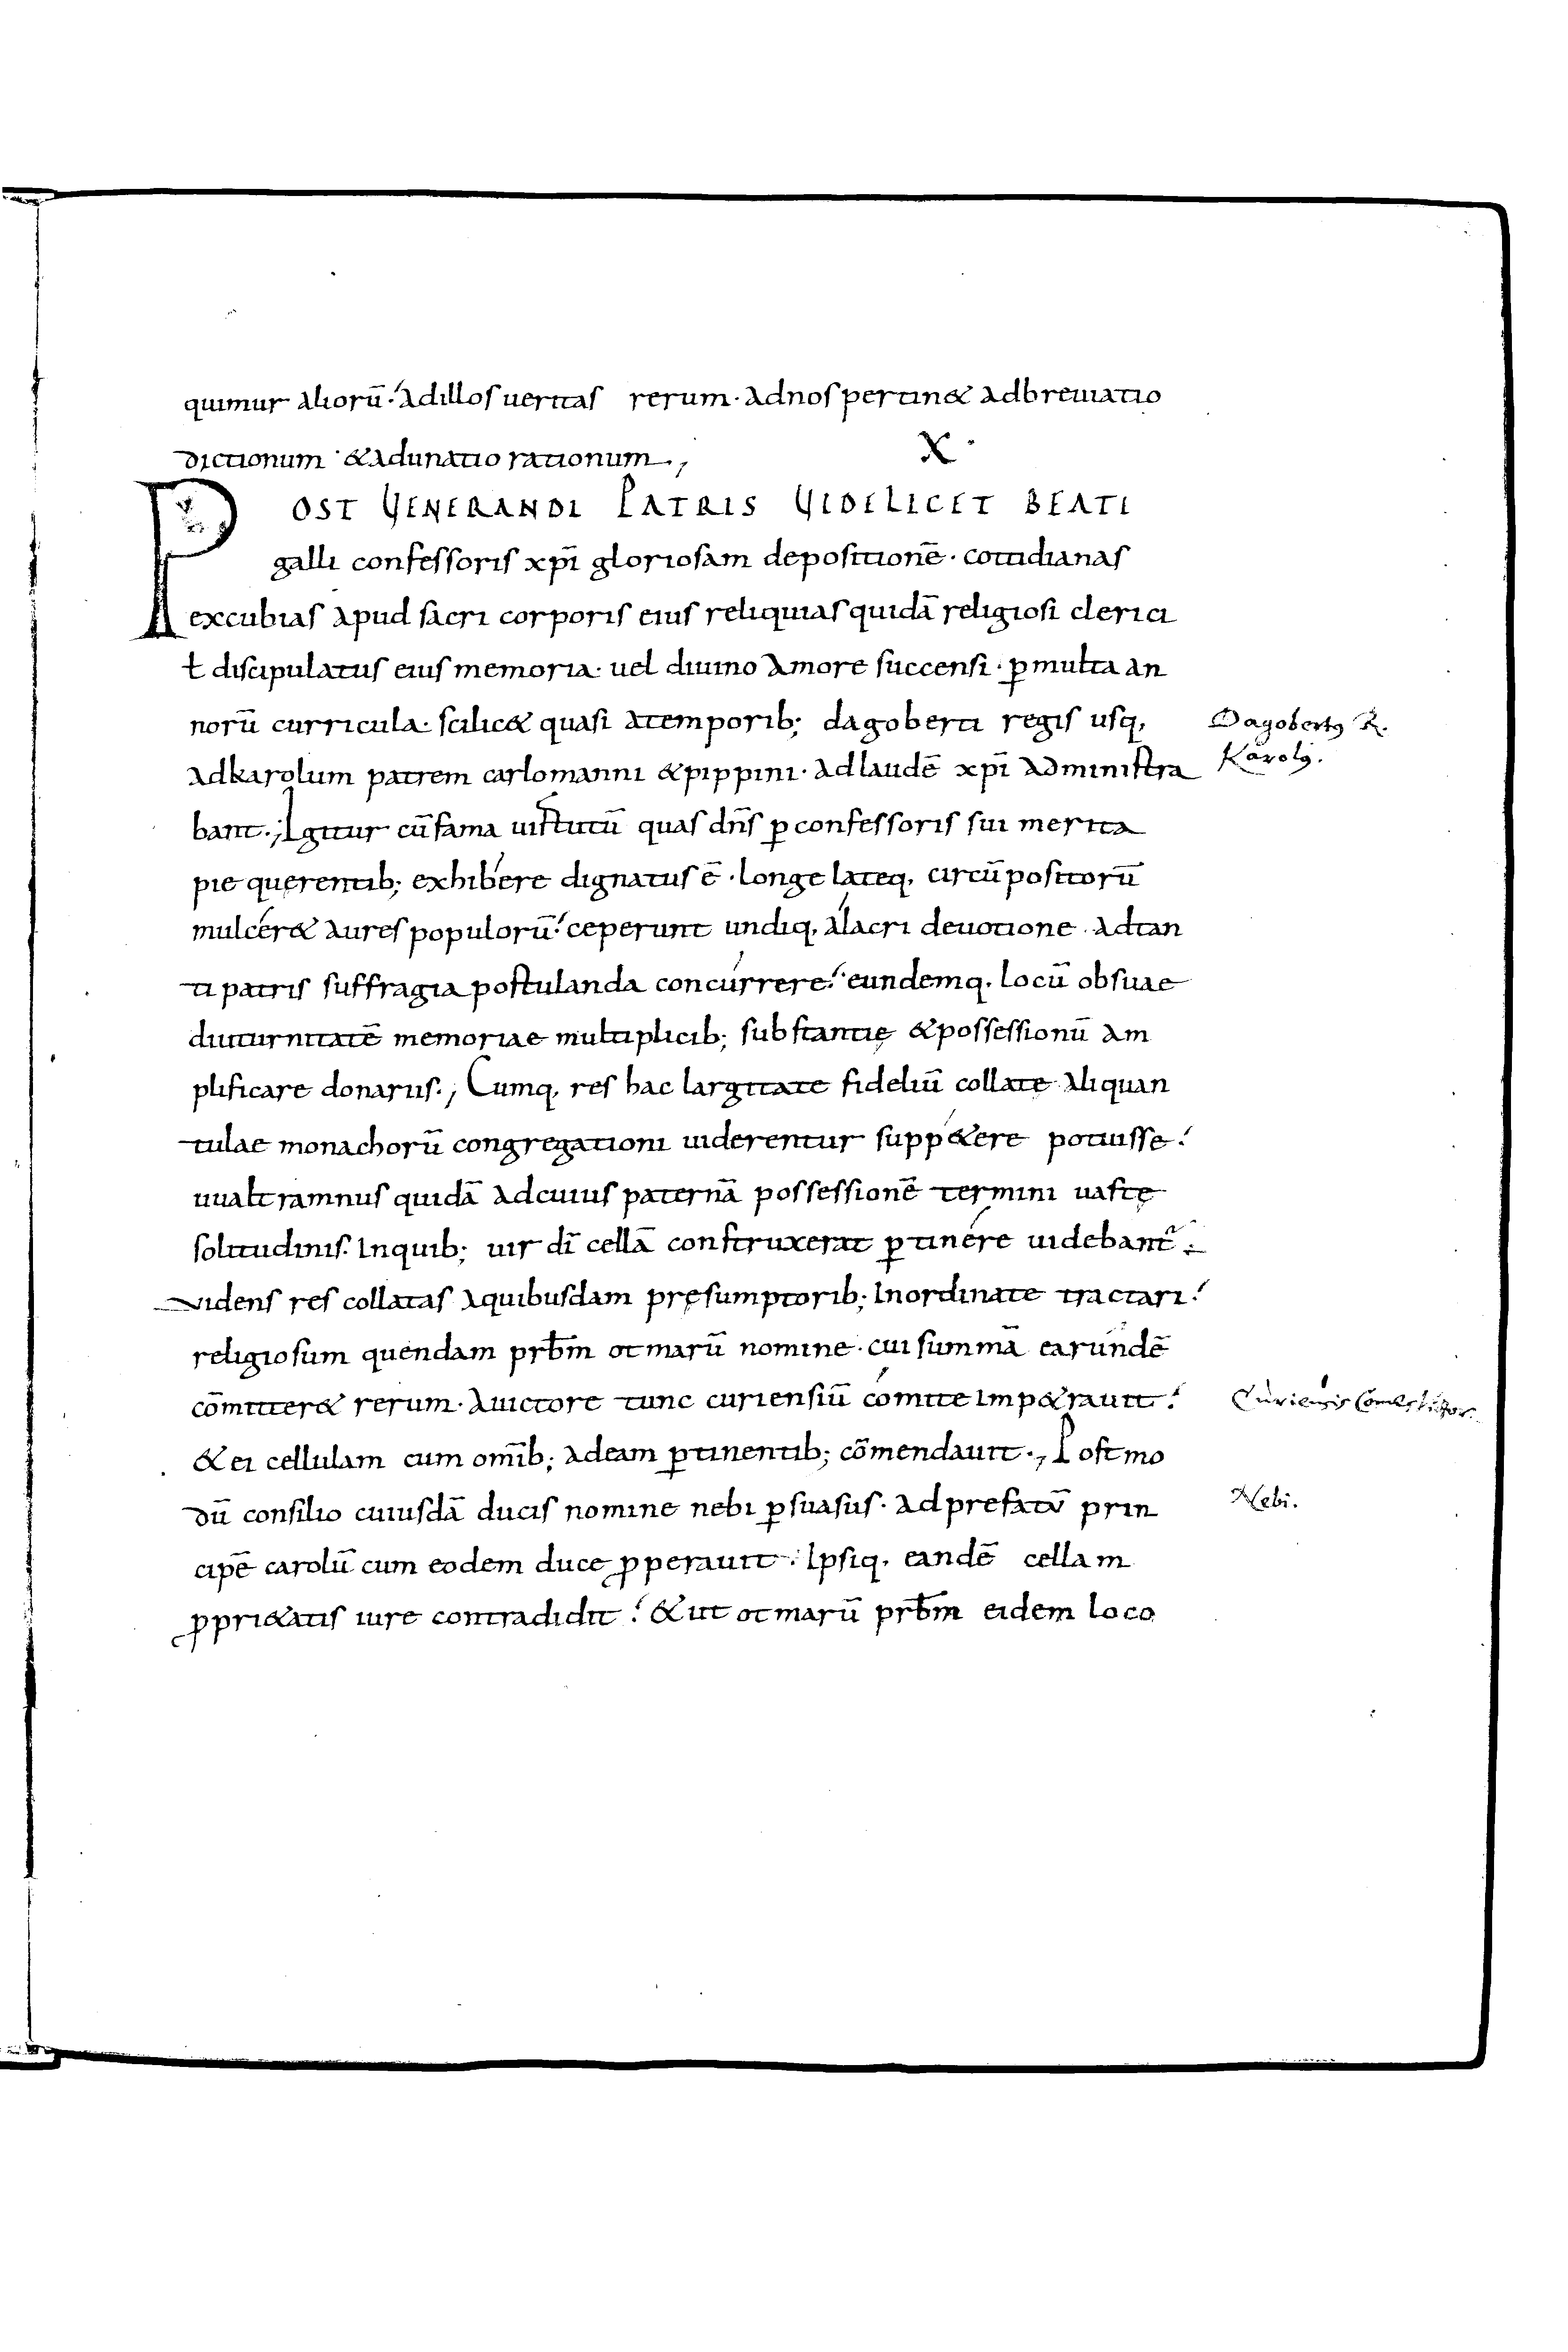 quimur aliorū· adillos ueritas rerum· adnos pertin& adbreuiatio
dictionum· &adunatio rationum·,
X·
POST VENERANDI PATRIS VIDELICET BEATI
galli confessoris xp̄i gloriosam depositionē· cottidianas
excubias apud sacri corporis eius reliquias quidā religiosi clerici
ł discipulatus eius memoria· uel diuino amore succensi· ꝑ multa an
norū curricula· scilic& quasi atemporib; dagoberti regis usq,
adkarolum patrem carlomanni &pippini· adlaudē xp̄i administra
bant·, Igitur cū fama uirtutū quas dn̄s ꝑ confessoris sui merita
pie querentib; exhibere dignatus ē· longe lateq, circū positorū
mulcer& aures populorū· ceperunt undiq, alacri deuotione adtan
ti patris suffragia postulanda concurrere· eundemq, locū obsuae
diuturnitatē memoriae multiplicib; substantię &possessionū am
plificare donariis·, Cumq, res hac largitate fideliū collate aliquan
tulae monachorū congregationi uiderentur supp&ere potuisse·
uualtramnus quidā adcuius paternā possessionē termini uastę
solitudinis· Inquib; uir dī cellā construxerat ꝑtinere uidebant᷑·
uidens res collatas aquibusdam pręsumptorib; Inordinate tractari·
religiosum quendam prb̄m otmarū nomine· cui summā earundē
cōmitter& rerum· auictore tunc curiensiū comite Imp&rauit·
&ei cellulam cum om̄ib; adeam ꝑtinentib; cōmendauit·, Postmo
dū consilio cuiusdā ducis nomine nebi ꝑsuasus· adprefatū prin
cipē carolū cum eodem duce ꝓperauit· Ipsiq, eandē cellam
ꝓpri&atis iure contradidit· &ut otmarū prb̄m eidem loco
Dagobertꝰ R.
Karolꝰ.
Curiensis Comes
Nebi.